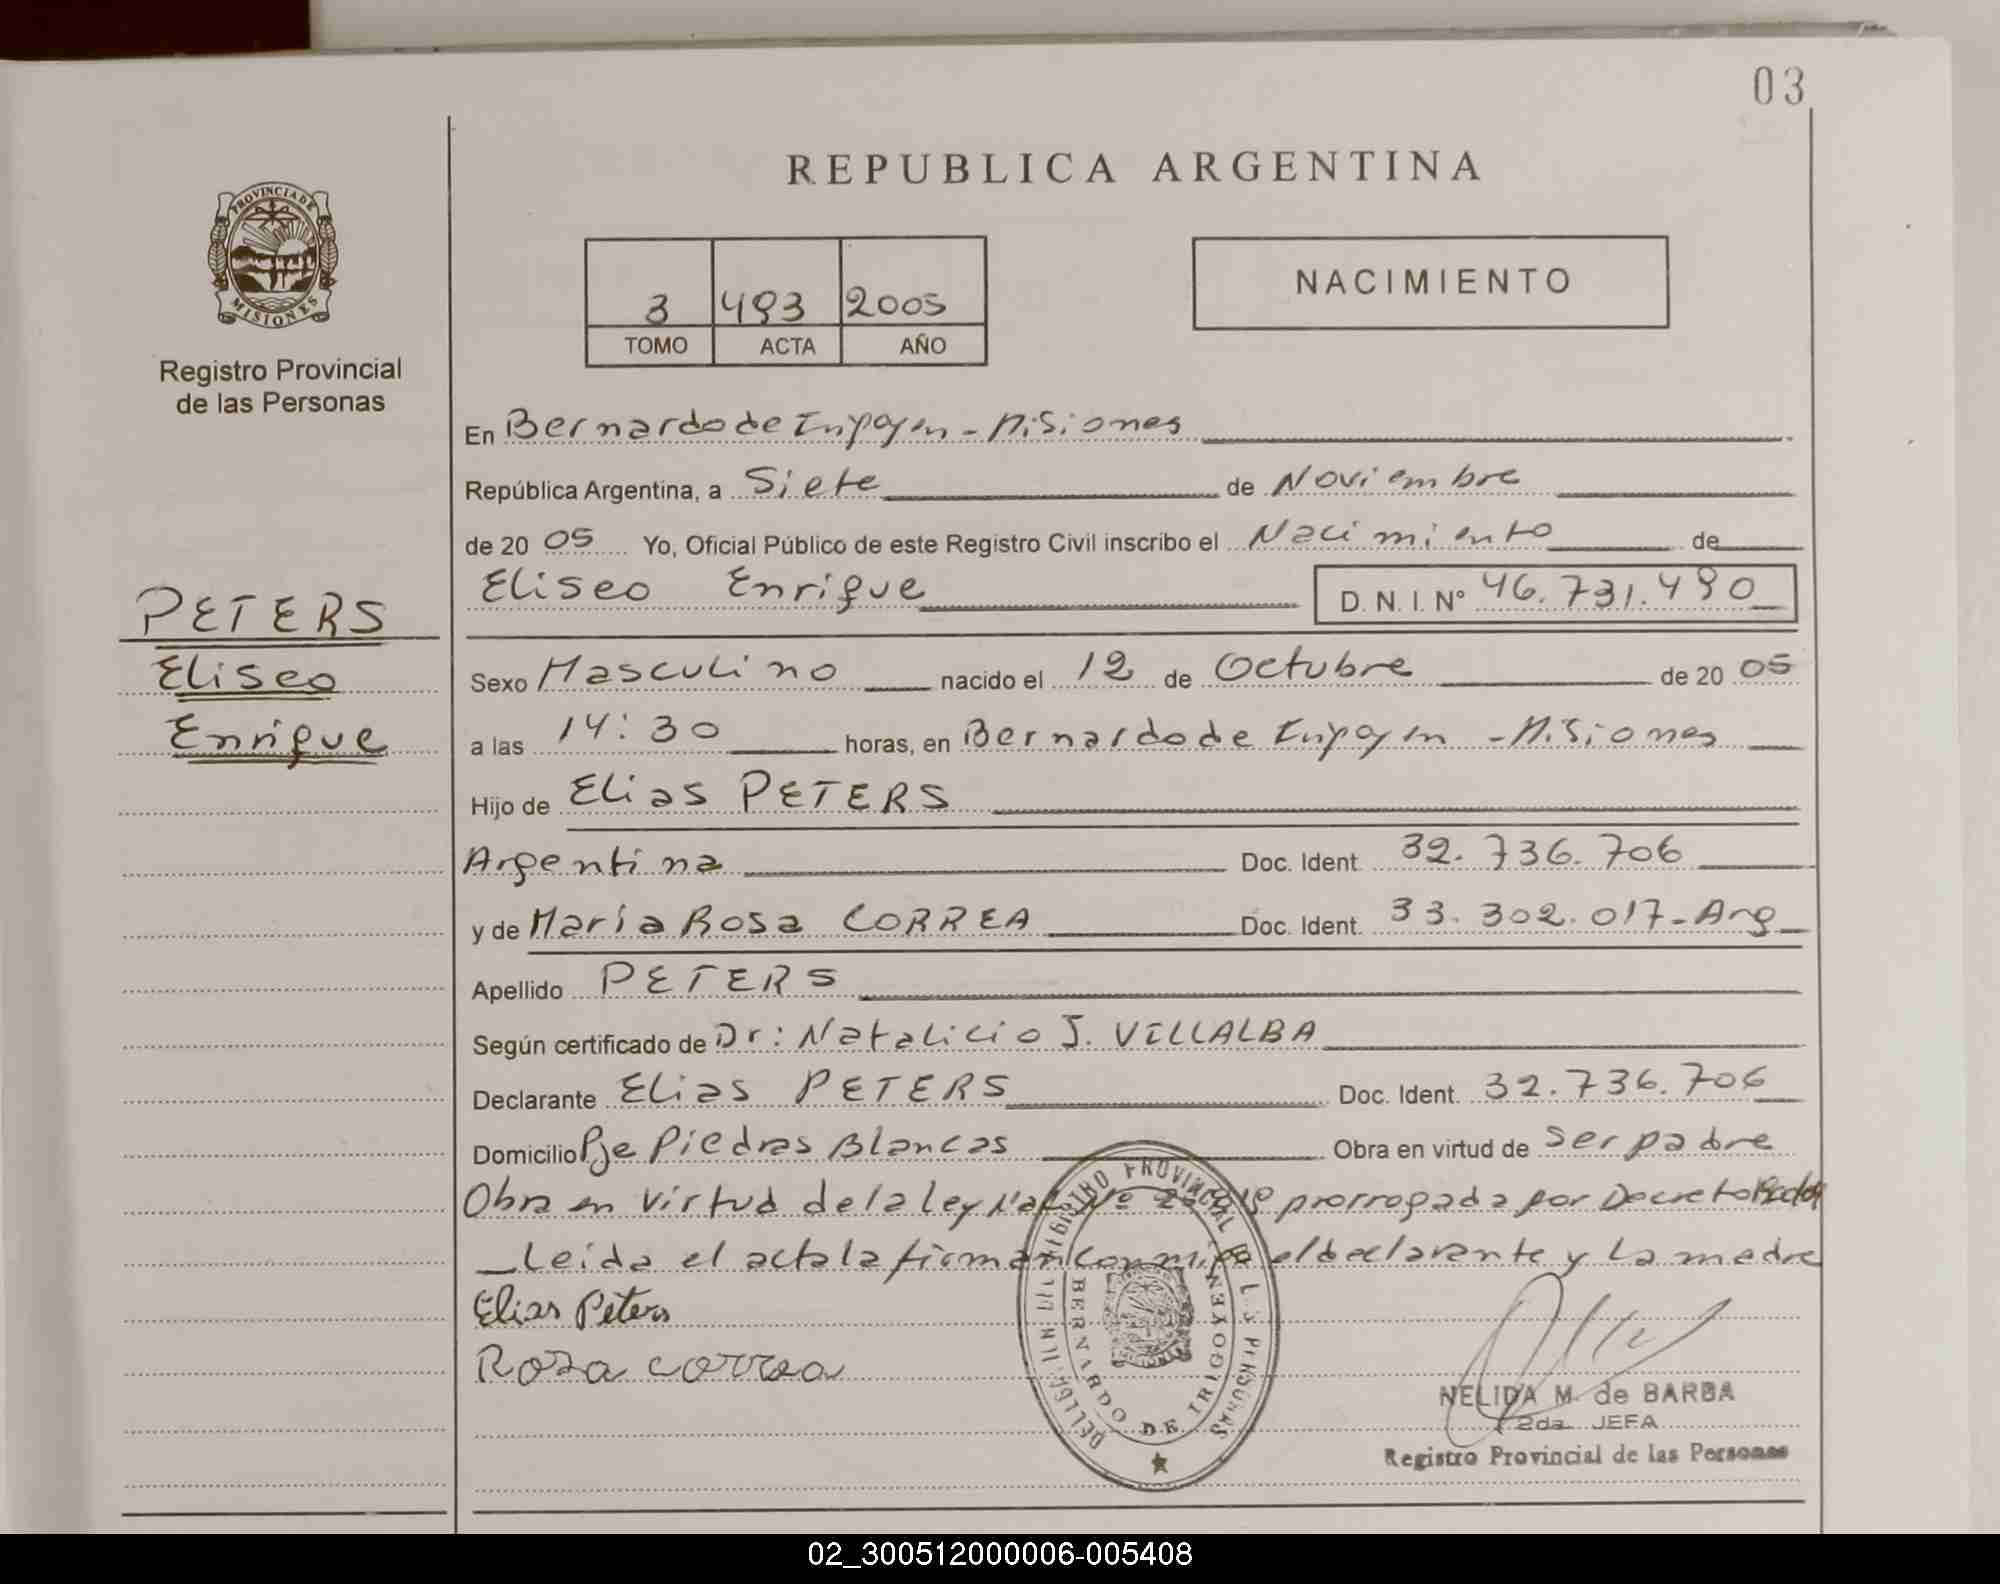 03
REPUBLICA ARGENTINA
PROVINCIA DE
MISIONES
Registro Provincial
de las Personas
3 493 2005
TOMO ACTA AÑO
NACIMIENTO
En Bernardo de Irigoyen - Misiones
República Argentina, a Siete de Noviembre
de 20 05 Yo, Oficial Público de este Registro Civil inscribo el Nacimiento de
Eliseo Enrique D. N. I. Nº 46.731.490
PETERS
Eliseo
Enrique
Sexo Masculino nacido el 12 de Octubre de 20 05
a las 14:30 horas, en Bernardo de Irigoyen - Misiones
Hijo de Elias PETERS
Argentina Doc. Ident. 32.736.706
y de María Rosa CORREA Doc. Ident. 33.302.017-Arg
Apellido PETERS
Según certificado de Dr: Natalicio J. VILLALBA
Declarante Elias PETERS Doc. Ident. 32.736.706
Domicilio Pje Piedras Blancas Obra en virtud de ser padre
Obra en virtud de la ley Nac Nº prorrogada por Decreto
Leida el acta la firman conmigo el declarante y la madre
Elias Peters
Rosa correa
REGISTRO PROVINCIAL DE LAS PERSONAS
BERNARDO DE IRIGOYEN
NELIDA M. de BARBA
2da. JEFA
Registro Provincial de las Personas
02_300512000006-005408